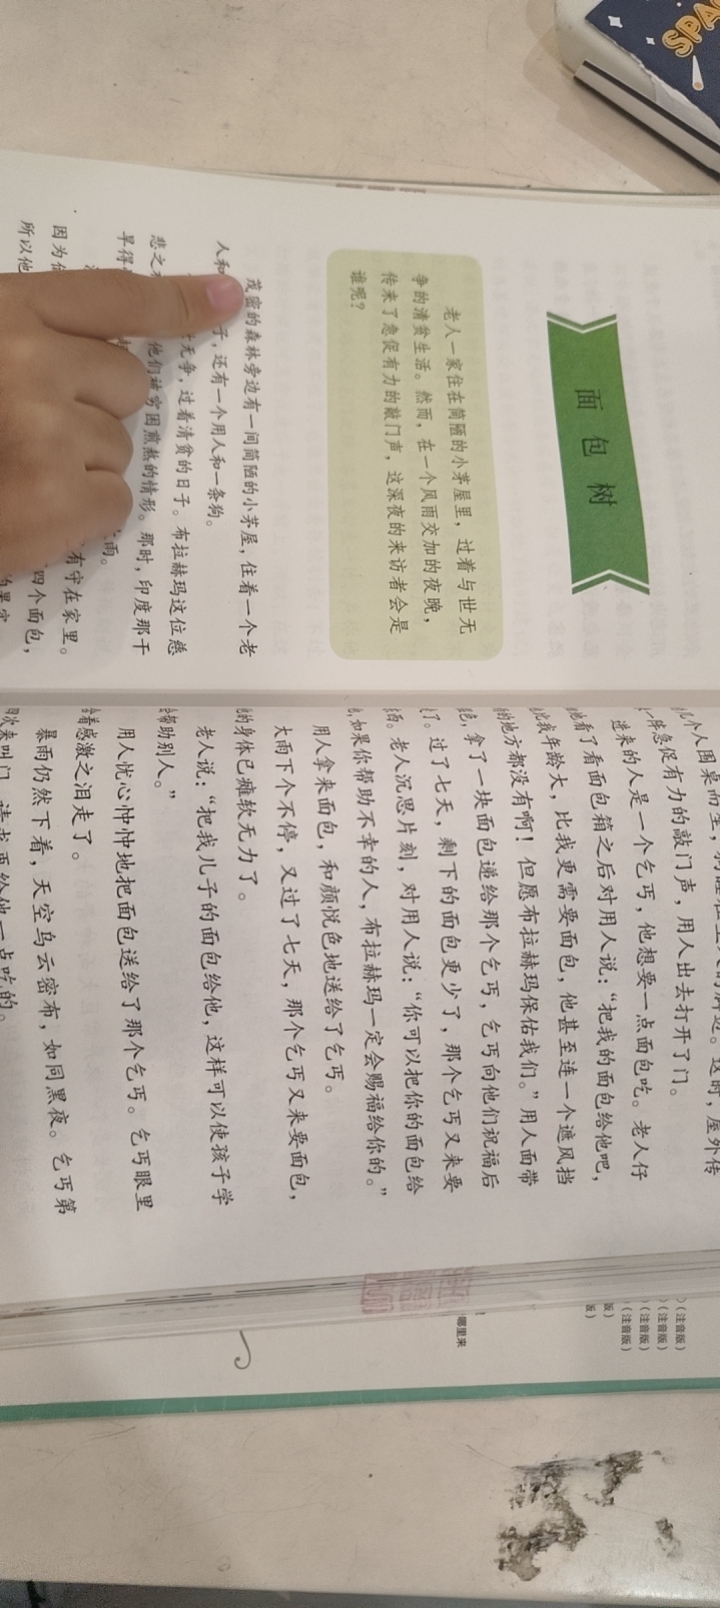 面包树
老人一家住在简陋的小茅屋里，过着与世无
争的清贫生活。然而，在一个风雨交加的夜晚，
传来了急促有力的敲门声，这深夜的来访者会是
谁呢？
茂密的森林旁边有一间简陋的小茅屋，住着一个老
人和 子，还有一个用人和一条狗。
无争，过着清贫的日子。布拉赫玛这位慈
悲之 他们被穷困煎熬的情形。那时，印度那干
早得 雨。
有守在家里。
因为 四个面包，
所以他
个人围桌而坐， 这时，屋外传
急促有力的敲门声，用人出去打开了门。
进来的人是一个乞丐，他想要一点面包吃。老人仔
看了看面包箱之后对用人说：“把我的面包给他吧，
我年龄大，比我更需要面包，他甚至连一个遮风挡
的地方都没有啊！但愿布拉赫玛保佑我们。”用人面带
色，拿了一块面包递给那个乞丐，乞丐向他们祝福后
了。过了七天，剩下的面包更少了，那个乞丐又来要
老人沉思片刻，对用人说：“你可以把你的面包给
如果你帮助不幸的人，布拉赫玛一定会赐福给你的。”
用人拿来面包，和颜悦色地送给了乞丐。
大雨下个不停，又过了七天，那个乞丐又来要面包，
的身体已瘫软无力了。
老人说：“把我儿子的面包给他，这样可以使孩子学
帮助别人。”
用人忧心忡忡地把面包送给了那个乞丐。乞丐眼里
着感激之泪走了。
暴雨仍然下着，天空乌云密布，如同黑夜。乞丐第
次来叫门，请求再给他一点吃的。
（注音版）
（注音版）
（注音版）
（注音版）
版）
版）
哪里来
SPA